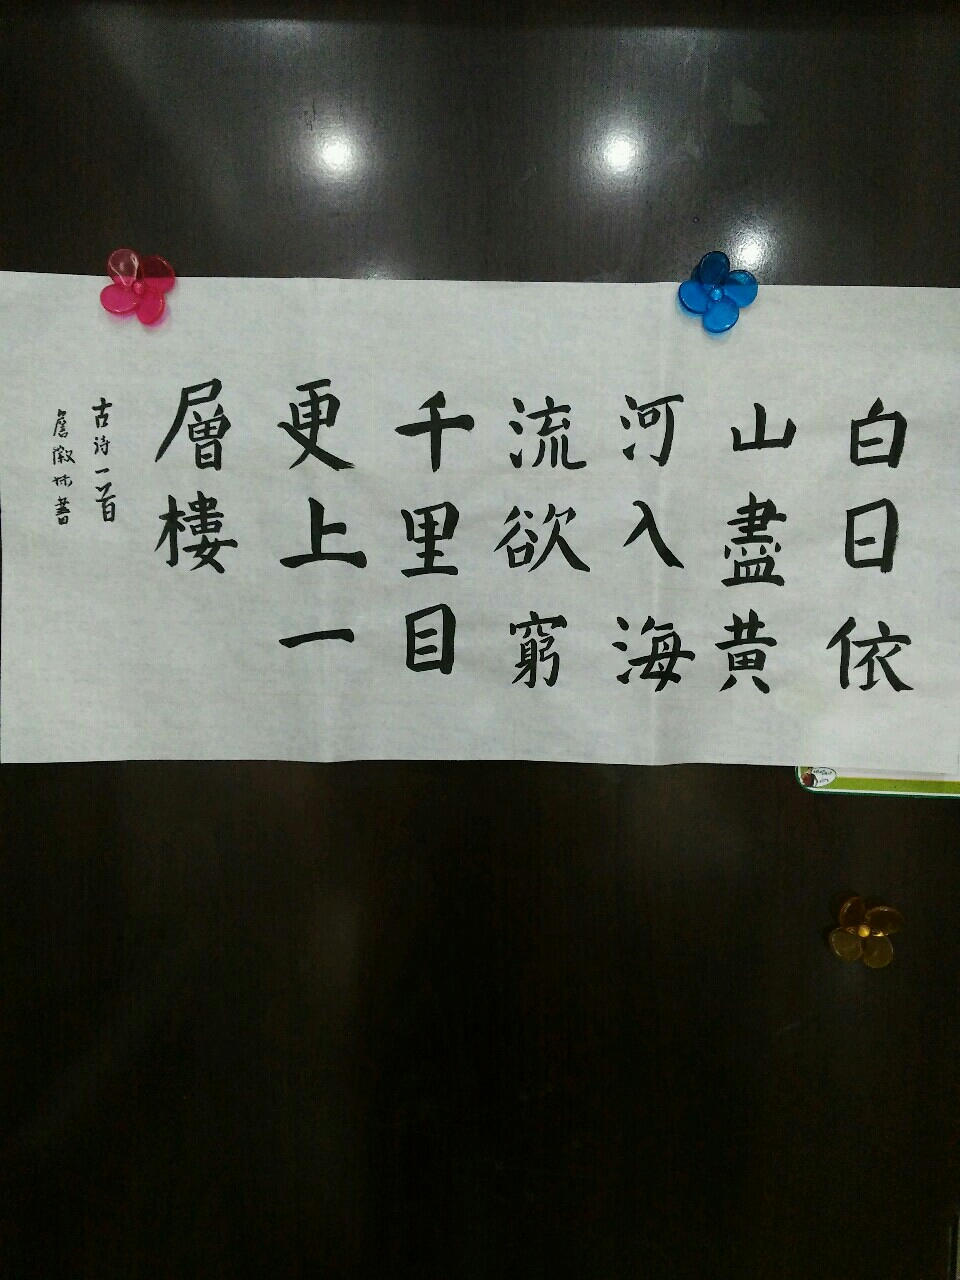 白日依
山盡黃
河入海
流欲窮
千里目
更上一
層樓
古诗一首
詹淑林書